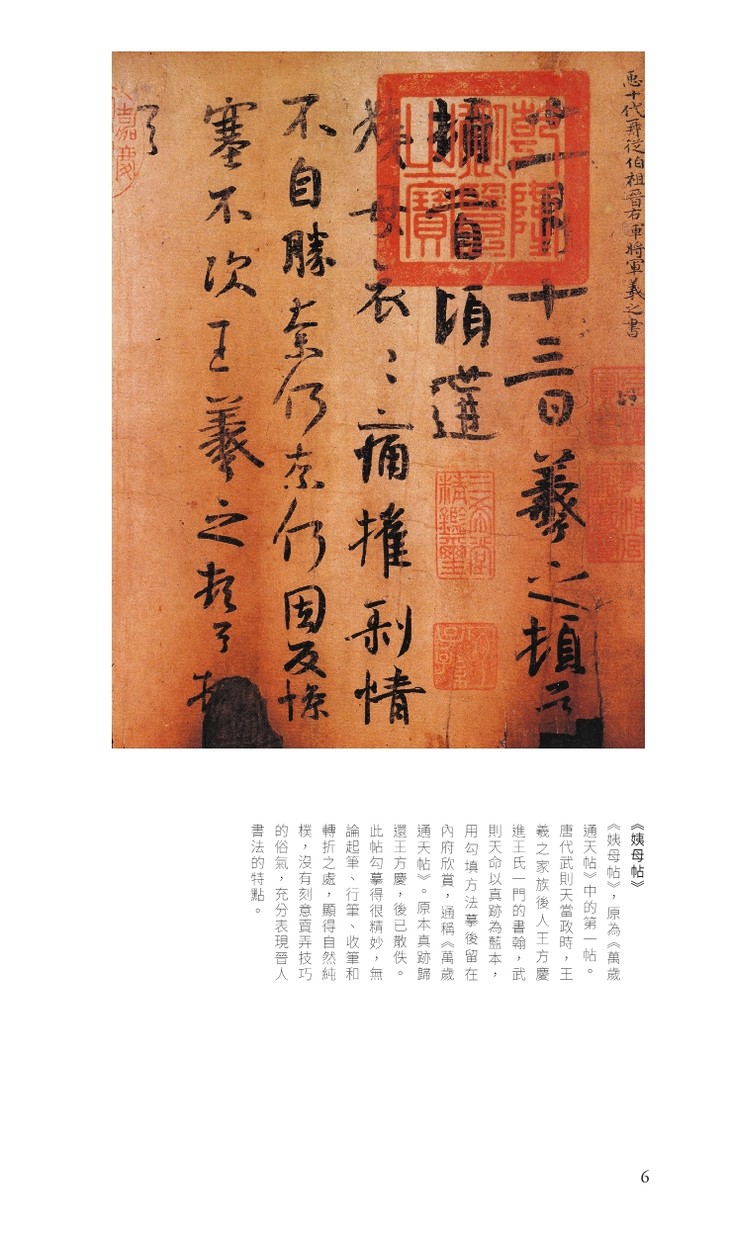 臣十代再從伯祖晉右軍將軍羲之書
十一月十三日羲之頓首
頓首頃遘
姨母哀〻痛摧剥情
不自勝奈何奈何因反慘
塞不次王羲之頓首頓
首
乾隆御覽之寶
三希堂精鑑璽
嘉慶
《姨母帖》
《姨母帖》，原為《萬歲
通天帖》中的第一帖。
唐代武則天當政時，王
羲之家族後人王方慶
進王氏一門的書翰，武
則天命以真跡為藍本，
用勾填方法摹後留在
內府欣賞，通稱《萬歲
通天帖》。原本真跡歸
還王方慶，後已散佚。
此帖勾摹得很精妙，無
論起筆、行筆、收筆和
轉折之處，顯得自然純
樸，沒有刻意賣弄技巧
的俗氣，充分表現晉人
書法的特點。
6